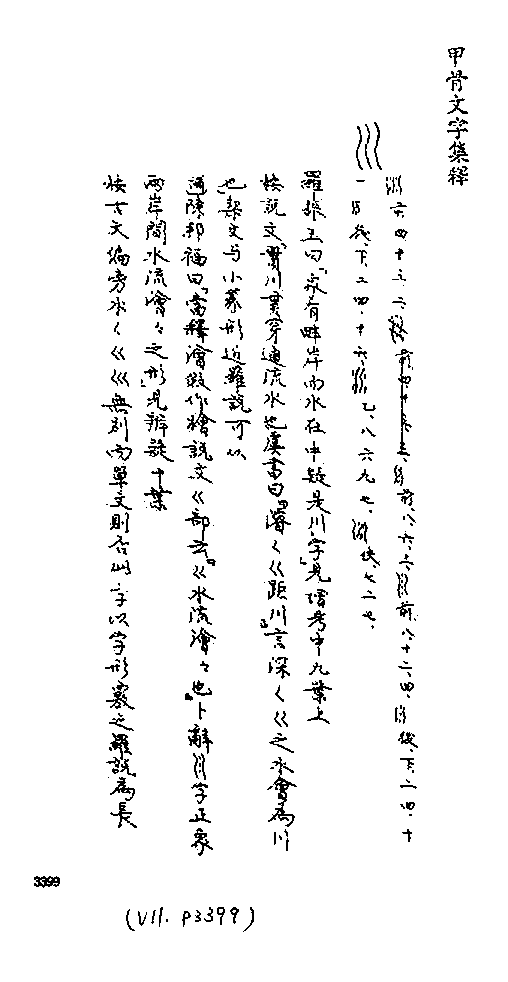 甲骨文字集釋
巛
六四十三二 前四十三五 前八六三 前八十二四 後下二四十
一 後下二四十六 乙八六九七 佚七二七
羅振玉曰「象有畔岸而水在中疑是川字」見增考中九葉上
按說文「川貫穿通流水也虞書曰『濬〈巜距川』言深〈巜之水會為川
也」契文与小篆形近羅說可从
陳邦福曰「當釋澮叚作檜說文巜部云『巜水流澮々也』卜辭字正象
兩岸間水流澮々之形」見辨疑十葉
按古文偏旁水〈巜巛無別而單文則否此字以字形察之羅說為長
3399
(VII. P3399)